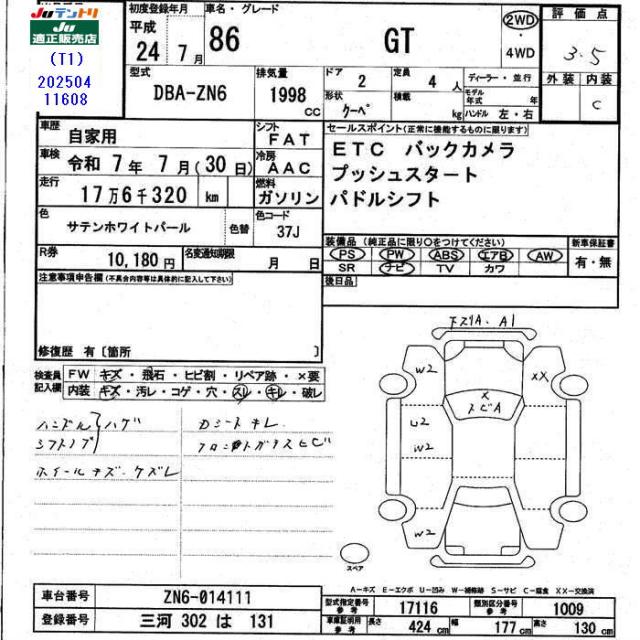 Juテントリ
Ju
適正販売店
(T1)
202504
11608
初度登録年月
平成
24 7月
車名・グレード
86 GT
2WD
4WD
評価点
3.5
外装 内装
C
型式
DBA-ZN6
排気量
1998 CC
ドア 2
形状 クーペ
定員 4 人
積載 kg
ディーラー・並行
モデル年式 年
ハンドル 左・右
車歴 自家用
シフト FAT
車検 令和 7年 7月(30日)
冷房 AAC
走行 17万6千320 km
燃料 ガソリン
色 サテンホワイトパール
色替
色コード 37J
R券 10,180円
名変通知期限 月 日
セールスポイント(正常に機能するものに限ります)
ETC バックカメラ
プッシュスタート
パドルシフト
装備品(純正品に限り○をつけてください)
PS PW ABS エアB AW
SR ナビ TV カワ
新車保証書
有・無
後日品
注意事項申告欄(不具合内容等は具体的に記入して下さい)
修復歴 有〔箇所 〕
検査員記入欄
FW キズ・飛石・ヒビ割・リペア跡・×要
内装 キズ・汚レ・コゲ・穴・スレ・キレ・破レ
ハンドル
シフトノブ
ハゲ
ホイールキズ・ケズレ
カシートキレ
フロントガラスヒビ
下スリA・A1
W2
XX
X
スビA
U2
W2
W2
スペア
A-キズ E-エクボ U-凹み W-補修跡 S-サビ C-腐食 XX-交換済
車台番号 ZN6-014111
登録番号 三河 302 は 131
型式指定番号 参考 17116
類別区分番号 参考 1009
車庫証明用 参考
長さ 424 cm 幅 177 cm 高さ 130 cm